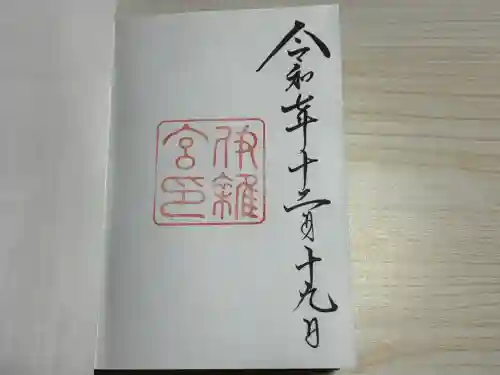 令和七年十二月十九日
伊雜
宮印